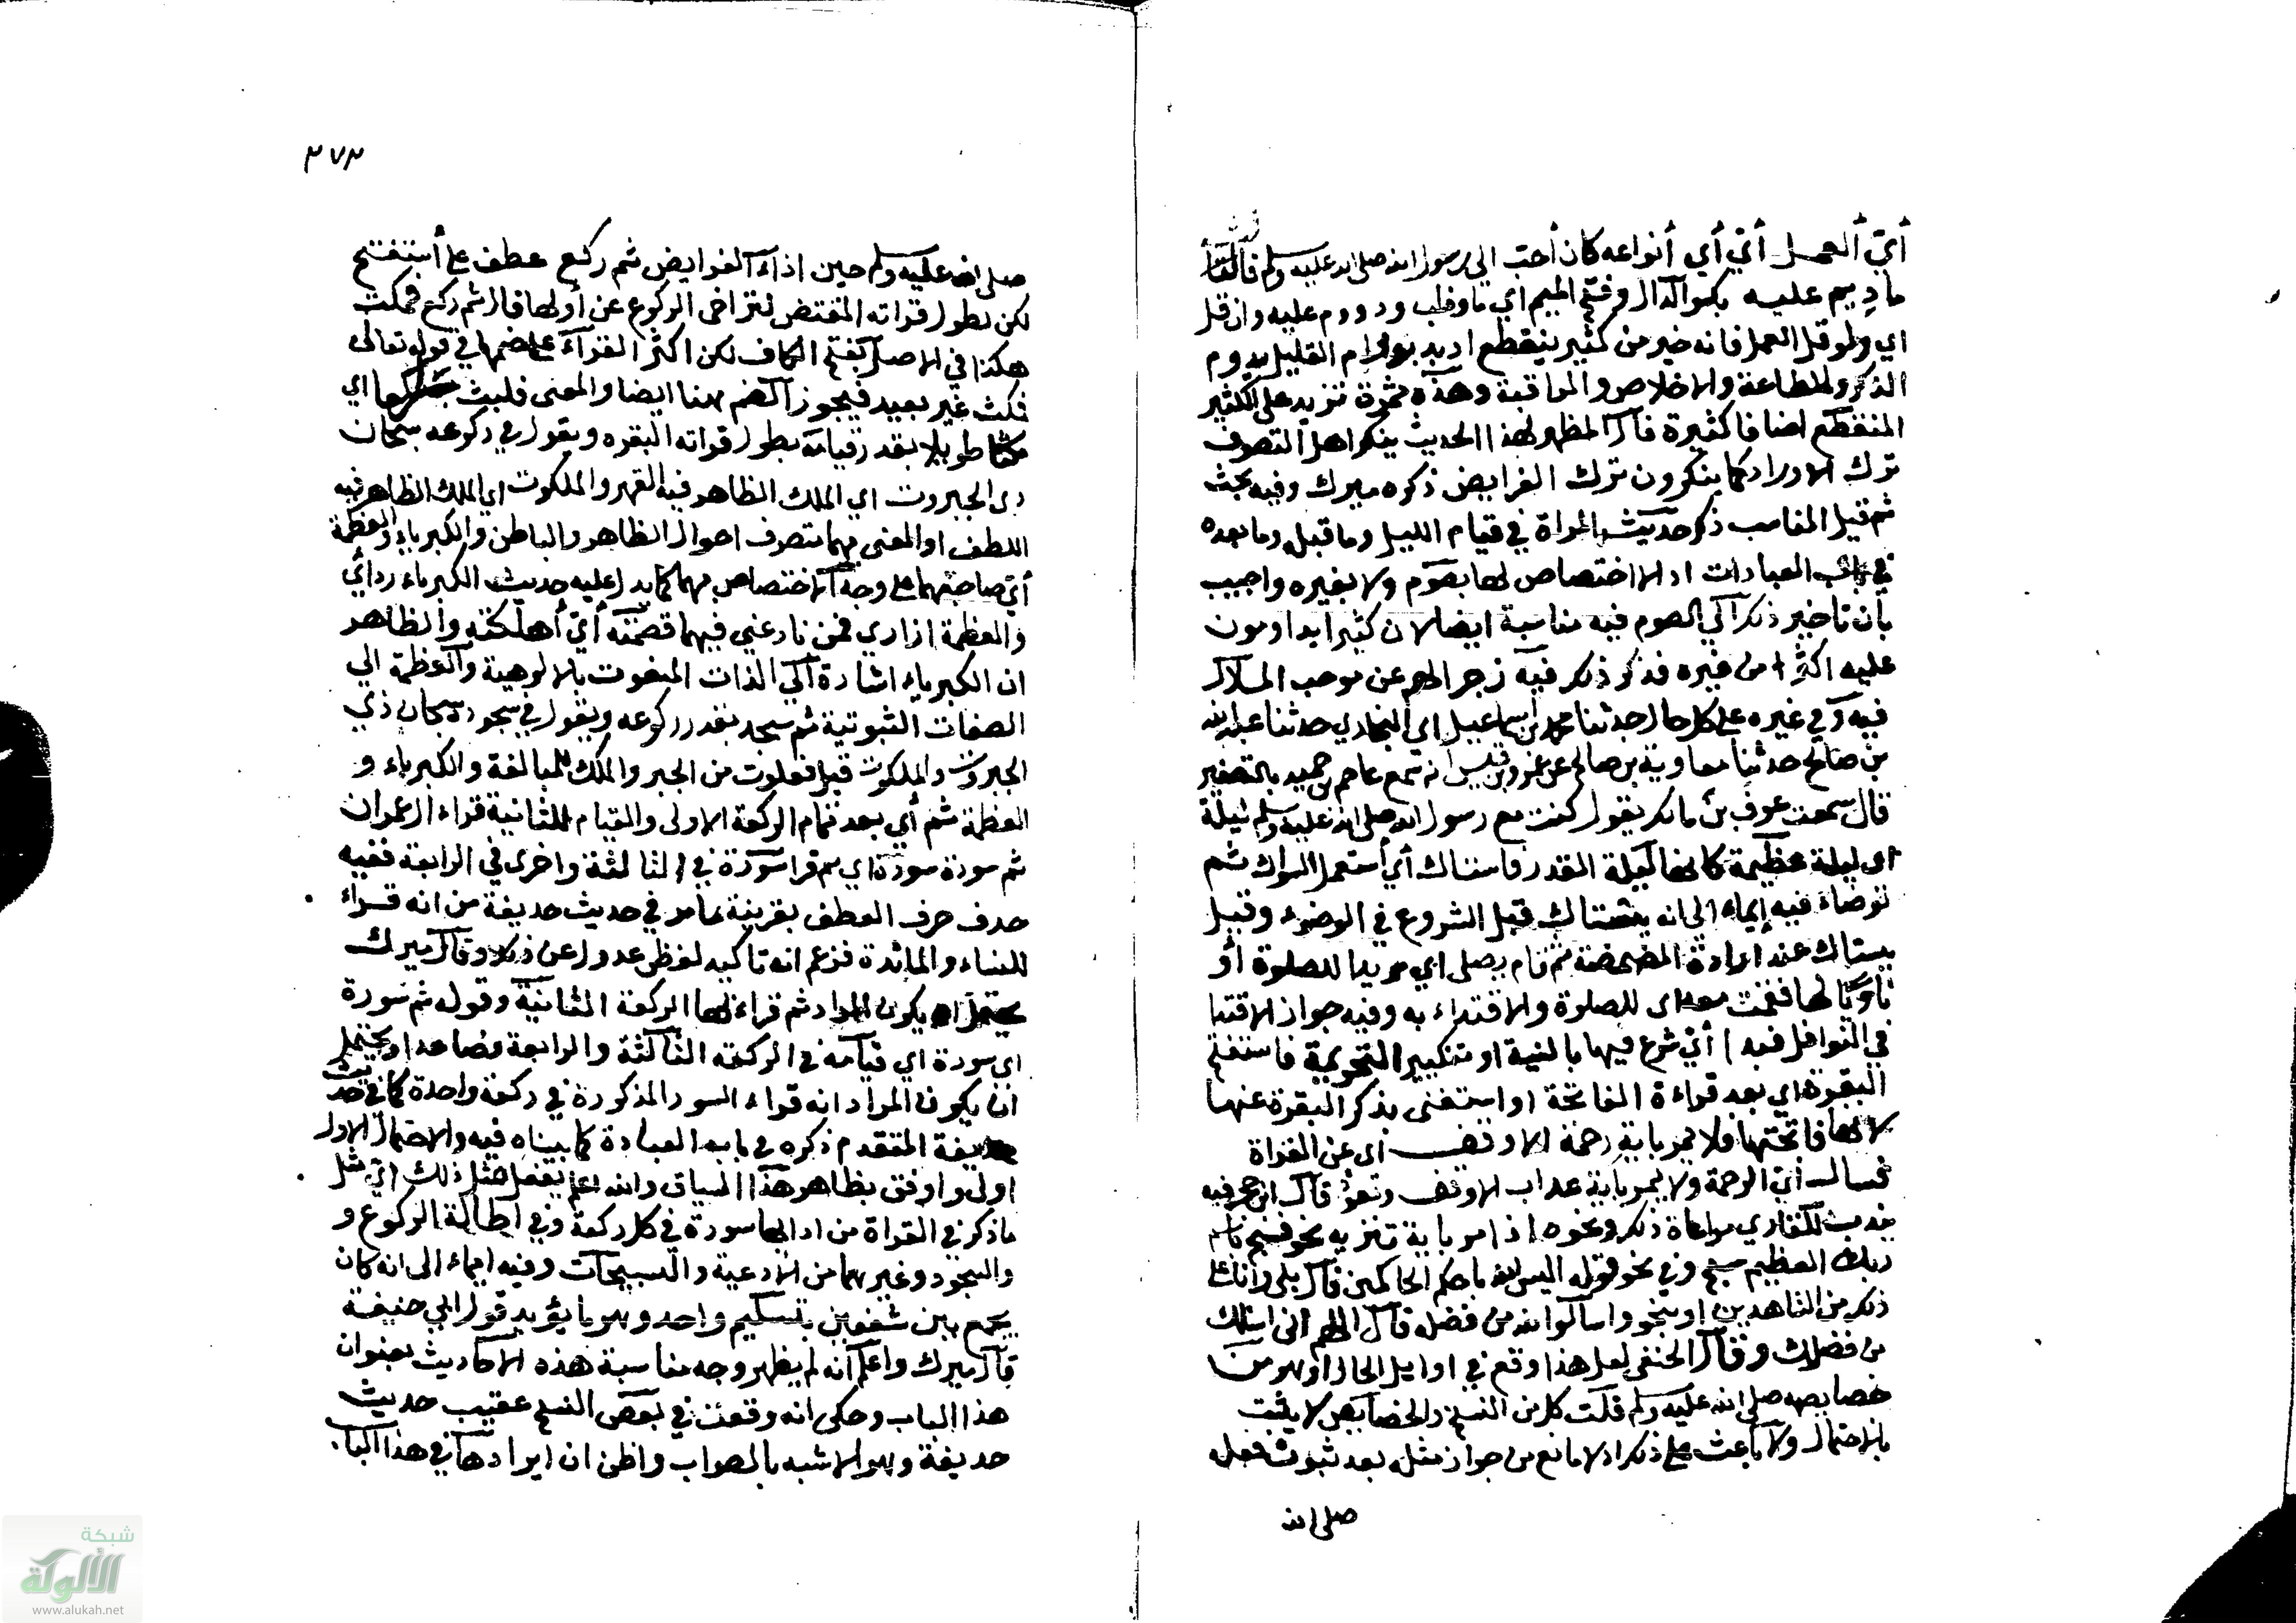 أيّ العمل أيّ أي أنواعه كان أحب الى رسول الله صلى الله عليه وسلم قالتا
ما ديم عليه بكسر الدال وفتح الميم اي ما وظب ودووم عليه وان قل
اي ولو قل العمل فانه خير من كثير ينقطع اذ بدوام القليل يدوم
الذكر والطاعة والاخلاص والمراقبة وهذه ثمرة تزيد على الكثير
المنقطع اضعافا كثيرة قال المظهر لهذا الحديث ينكر اهل التصوف
ترك الاوراد كما ينكرون ترك الفرايض ذكره ميرك وفيه بحث
ثم قيل المناسب ذكر حديث المراة في قيام الليل وما قبله وما بعده
في باب العبادات اذ لا اختصاص لها بصوم ولا بغيره واجيب
بان تاخير ذلك الى الصوم فيه مناسبة ايضا لان كثيرا يداومون
عليه اكثر من غيره فذكر ذلك فيه زجر الهم عن موجب الملال
فيه وفي غيره على كل حال حدثنا محمد بن اسماعيل اي البخاري حدثنا عبد الله
بن صالح حدثنا معاوية بن صالح عن عمرو بن قيس انه سمع عاصم بن حميد بالتصغير
قال سمعت عوف بن مالك يقول كنت مع رسول الله صلى الله عليه وسلم ليلة
اي ليلة عظيمة كانها ليلة القدر فاستاك أي استعمل السواك ثم
توضاء فيه إيماء الى انه يستاك قبل الشروع في الوضوء وقيل
يستاك عند ارادة المضمضة ثم قام يصلى اي مريدا للصلوة أو
ناويا لها فقمت معه اى للصلوة والاقتداء به وفيه جواز الاقتدا
في النوافل فبدا أيّ شرع فيها بالنية او بتكبير التحريمة فاستفتح
البقرة اي بعد قراءة الفاتحة او استغنى بذكر البقرة عنها
لانها فاتحتها فلا يمر باية رحمة الا وقف اى عن القراة
فسال اي الرحمة ولا يمر باية عذاب الا وقف وتعوذ قال ابن حجر فيه
يندب للقاري مراعاة ذلك ونحوه اذا مر باية تنزيه نحو فسبح باسم
ربك العظيم سبح وفي نحو قوله اليس الله باحكم الحاكمين قال بلى وانا على
ذلك من الشاهدين او بنحو واسالوا الله من فضله قال اللهم انى اسئلك
من فضلك وقال الحنفي لعل هذا وقع في اوايل الحال او هو من
خصايصه صلى الله عليه وسلم قلت كل من النسخ والخصايص لا يثبت
بالاحتمال ولا باعث على ذلك اذ لا مانع من جواز مثله بعد ثبوت فعله
صلى الله
٢٧٣
صلى الله عليه وسلم حين اذاء الفرايض ثم ركع عطف على أستفتح
لكن لطول قراته المقتض لتراخى الركوع عن أولها قال ثم ركع فمكث
هكذا في الاصل بفتح الكاف لكن اكثر القراء على ضمها في قوله تعالى
فمكث غير بعيد فيجوز الضم هنا ايضا والمعنى فلبث راكعا اي
مكثا طويلا بقدر قيامه بطول قراته البقره ويقول في ركوعه سبحان
ذى الجبروت اي الملك الظاهر فيه القهر والملكوت اي الملك الظاهر فيه
اللطف او المعنى بهما متصرف احوال الظاهر والباطن والكبرياء والعظمة
أي صاحبهما على وجه الاختصاص بهما كما يدل عليه حديث الكبرياء ردائي
والعظمة ازاري فمن نازعني فيهما قصمته أي أهلكته والظاهر
ان الكبرياء اشارة الى الذات المنعوت بالالوهية والعظمة الي
الصفات الثبوتية ثم سجد بقدر ركوعه ويقول في سجوده سبحان ذي
الجبروت والملكوت قيل فعلوت من الجبر والملك للمبالغة والكبرياء و
العظمة ثم أي بعد تمام الركعة الاولى والقيام للثانية قراء ال عمران
ثم سورة سورة اي ثم قرا سورة في الثالثة واخرى في الرابعة ففيه
حذف حرف العطف بقرينة ما مر في حديث حذيفة من انه قراء
للنساء والمائدة فزعم انه تاكيد لفظي عدول عن ذلك وقال ميرك
يحتمل ان يكون المراد ثم قراء لها الركعة الثانية وقوله ثم سورة
اى سورة اي قيامه في الركعة الثالثة والرابعة فصاعدا ويحتمل
ان يكون المراد انه قراء السور المذكورة في ركعة واحدة كما في حديث
حذيفة المتقدم ذكره في باب العبادة كما بيناه فيه والاحتمال الاول
اولى واوفق بظاهر هذا السياق والله اعلم يفعل مثل ذلك أي مثل
ماذكر في القراة من اد الها سورة في كل ركعة وفي اطالة الركوع و
والسجود وغيرهما من الأدعية والتسبيحات وفيه ايماء الى انه كان
يجمع بين شفعين بتسليم واحد وهو ما يؤيد قول ابي حنيفة
قال ميرك واعلم انه لم يظهر وجه مناسبة هذه الاحاديث بعنوان
هذا الباب وحكى انه وقعت في بعض النسخ عقيب حديث
حذيفة وهو الاشبه بالصواب واظن ان ايرادها في هذا الباب
شبكة
الألوكة
www.alukah.net